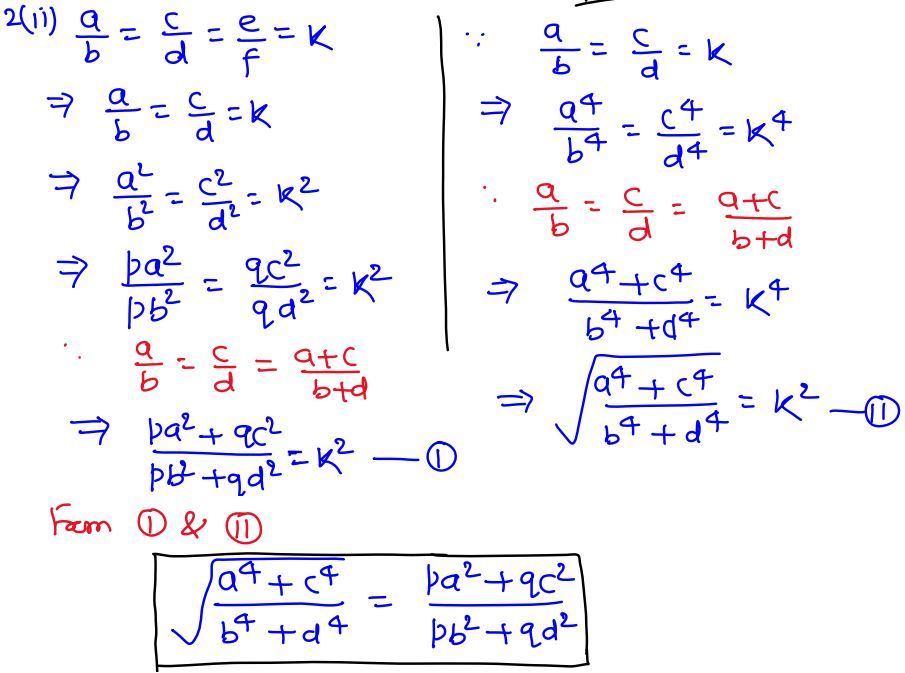 2(ii) a/b = c/d = e/f = K
⇒ a/b = c/d = K
⇒ a²/b² = c²/d² = K²
⇒ pa²/pb² = qc²/qd² = K²
∵ a/b = c/d = (a+c)/(b+d)
⇒ (pa² + qc²)/(pb² + qd²) = K² — (I)
∵ a/b = c/d = K
⇒ a⁴/b⁴ = c⁴/d⁴ = K⁴
∵ a/b = c/d = (a+c)/(b+d)
⇒ (a⁴ + c⁴)/(b⁴ + d⁴) = K⁴
⇒ √((a⁴ + c⁴)/(b⁴ + d⁴)) = K² — (II)
From (I) & (II)
√((a⁴ + c⁴)/(b⁴ + d⁴)) = (pa² + qc²)/(pb² + qd²)